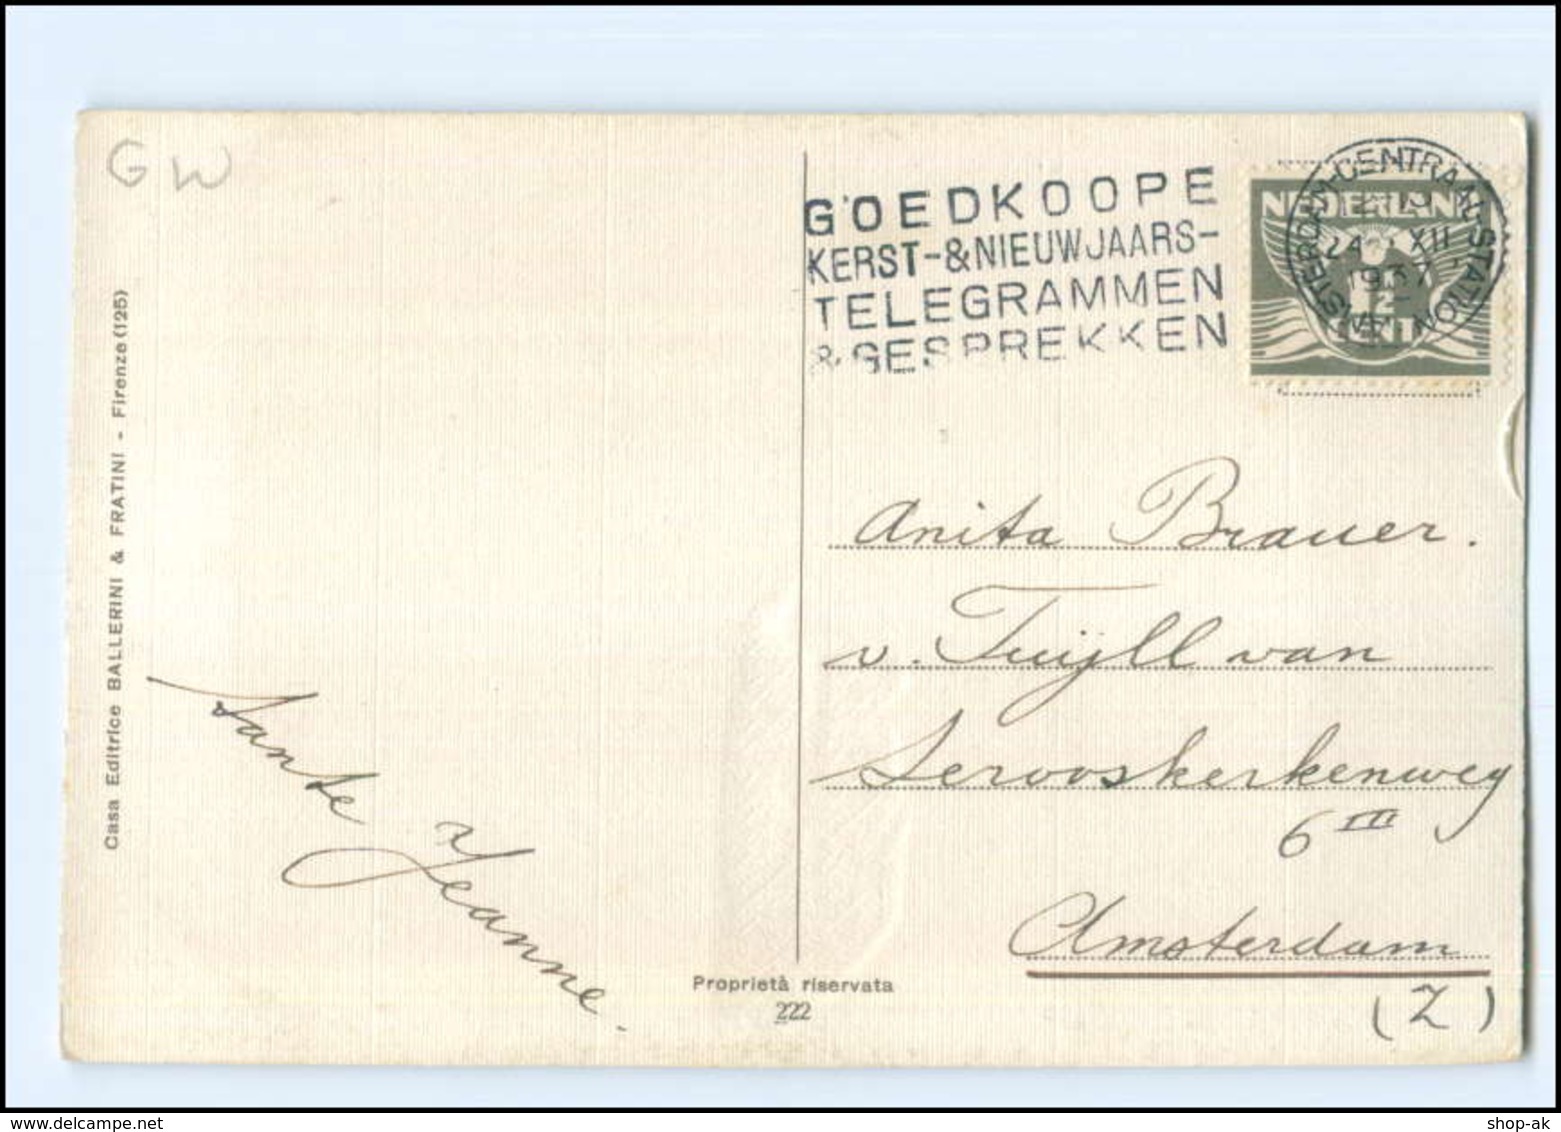 GW
GOEDKOOPE
KERST-&NIEUWJAARS-
TELEGRAMMEN
& GESPREKKEN
AMSTERDAM-CENTRAAL-STATION
24 XII
1937
NEDERLAND
1½
CENT
Casa Editrice BALLERINI & FRATINI - Firenze (125)
Anita Brauer.
v. Tuijll van
Serooskerkenweg
6 III
Amsterdam
(Z)
Tante Jeanne.
Proprietà riservata
222
shop-ak